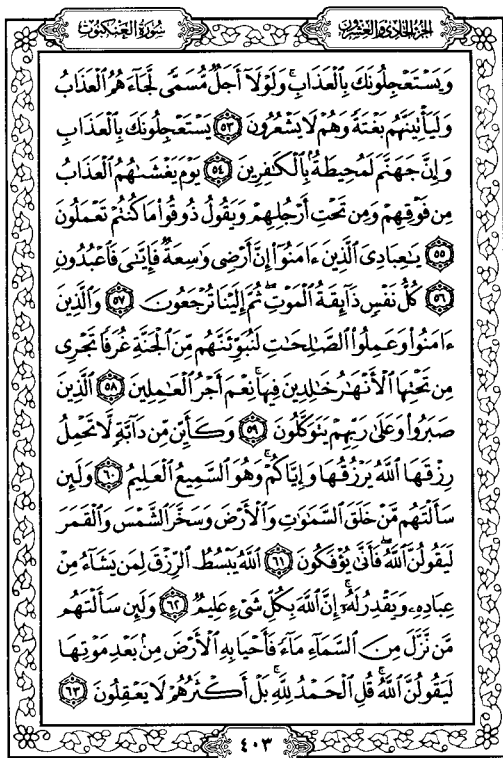 سُورَةُ الْعَنكَبُوتِ
الجزء الحادي والعشرون
وَيَسْتَعْجِلُونَكَ بِالْعَذَابِ ۚ وَلَوْلَا أَجَلٌ مُّسَمًّى لَّجَاءَهُمُ الْعَذَابُ
وَلَيَأْتِيَنَّهُم بَغْتَةً وَهُمْ لَا يَشْعُرُونَ ٥٣ يَسْتَعْجِلُونَكَ بِالْعَذَابِ
وَإِنَّ جَهَنَّمَ لَمُحِيطَةٌ بِالْكَٰفِرِينَ ٥٤ يَوْمَ يَغْشَىٰهُمُ الْعَذَابُ
مِن فَوْقِهِمْ وَمِن تَحْتِ أَرْجُلِهِمْ وَيَقُولُ ذُوقُوا مَا كُنتُمْ تَعْمَلُونَ
٥٥ يَٰعِبَادِىَ الَّذِينَ ءَامَنُوٓا إِنَّ أَرْضِى وَٰسِعَةٌ فَإِيَّٰىَ فَاعْبُدُونِ
٥٦ كُلُّ نَفْسٍ ذَآئِقَةُ الْمَوْتِ ۖ ثُمَّ إِلَيْنَا تُرْجَعُونَ ٥٧ وَالَّذِينَ
ءَامَنُوا وَعَمِلُوا الصَّٰلِحَٰتِ لَنُبَوِّئَنَّهُم مِّنَ الْجَنَّةِ غُرَفًا تَجْرِى
مِن تَحْتِهَا الْأَنْهَٰرُ خَٰلِدِينَ فِيهَا ۚ نِعْمَ أَجْرُ الْعَٰمِلِينَ ٥٨ الَّذِينَ
صَبَرُوا وَعَلَىٰ رَبِّهِمْ يَتَوَكَّلُونَ ٥٩ وَكَأَيِّن مِّن دَآبَّةٍ لَّا تَحْمِلُ
رِزْقَهَا اللَّهُ يَرْزُقُهَا وَإِيَّاكُمْ ۚ وَهُوَ السَّمِيعُ الْعَلِيمُ ٦٠ وَلَئِن
سَأَلْتَهُم مَّنْ خَلَقَ السَّمَٰوَٰتِ وَالْأَرْضَ وَسَخَّرَ الشَّمْسَ وَالْقَمَرَ
لَيَقُولُنَّ اللَّهُ ۖ فَأَنَّىٰ يُؤْفَكُونَ ٦١ اللَّهُ يَبْسُطُ الرِّزْقَ لِمَن يَشَآءُ مِنْ
عِبَادِهِۦ وَيَقْدِرُ لَهُۥٓ ۚ إِنَّ اللَّهَ بِكُلِّ شَىْءٍ عَلِيمٌ ٦٢ وَلَئِن سَأَلْتَهُم
مَّن نَّزَّلَ مِنَ السَّمَآءِ مَآءً فَأَحْيَا بِهِ الْأَرْضَ مِنۢ بَعْدِ مَوْتِهَا
لَيَقُولُنَّ اللَّهُ ۚ قُلِ الْحَمْدُ لِلَّهِ ۚ بَلْ أَكْثَرُهُمْ لَا يَعْقِلُونَ ٦٣
٤٠٣